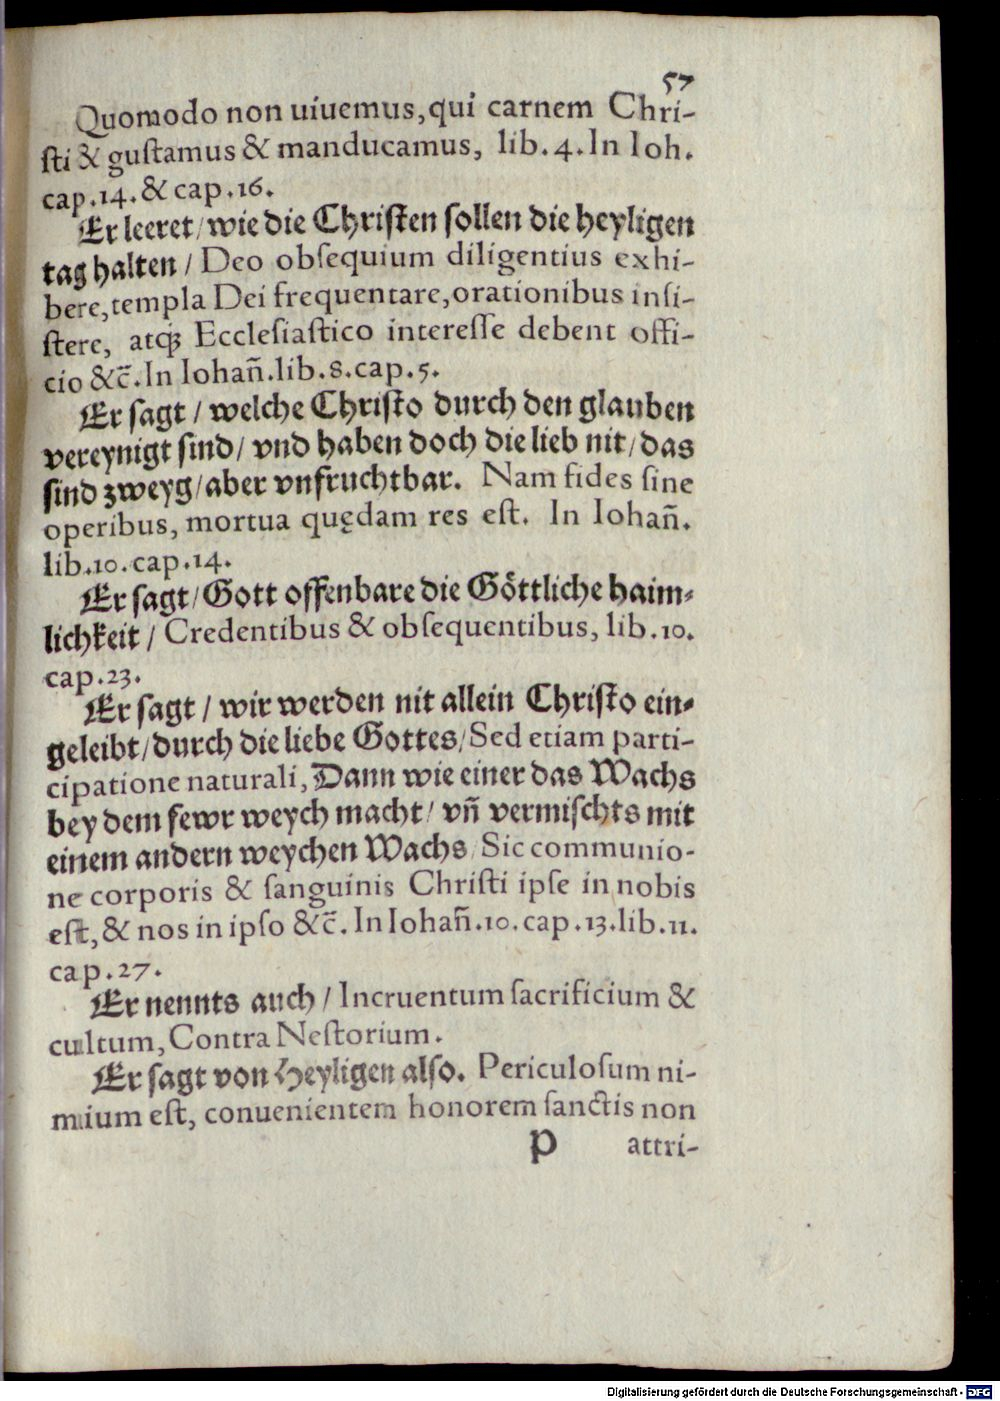 57
Quomodo non uiuemus, qui carnem Chri-
sti & gustamus & manducamus, lib. 4. In Ioh.
cap. 14. & cap. 16.
Er leeret / wie die Christen sollen die heyligen
tag halten / Deo obsequium diligentius exhi-
bere, templa Dei frequentare, orationibus insi-
stere, atqȝ Ecclesiastico interesse debent offi-
cio &c̃. In Iohañ. lib. 8. cap. 5.
Er sagt / welche Christo durch den glauben
vereynigt sind / vnd haben doch die lieb nit / das
sind zweyg / aber vnfruchtbar. Nam fides sine
operibus, mortua quędam res est. In Iohañ.
lib. 10. cap. 14.
Er sagt / Gott offenbare die Göttliche haim⸗
lichkeit / Credentibus & obsequentibus, lib. 10.
cap. 23.
Er sagt / wir werden nit allein Christo ein⸗
geleibt / durch die liebe Gottes / Sed etiam parti-
cipatione naturali, Dann wie einer das Wachs
bey dem fewr weych macht / vñ vermischts mit
einem andern weychen Wachs / Sic communio-
ne corporis & sanguinis Christi ipse in nobis
est, & nos in ipso &c̃. In Iohañ. 10. cap. 13. lib. 11.
cap. 27.
Er nennts auch / Incruentum sacrificium &
cultum, Contra Nestorium.
Er sagt von Heyligen also. Periculosum ni-
mium est, conuenientem honorem sanctis non
P attri-
Digitalisierung gefördert durch die Deutsche Forschungsgemeinschaft - DFG